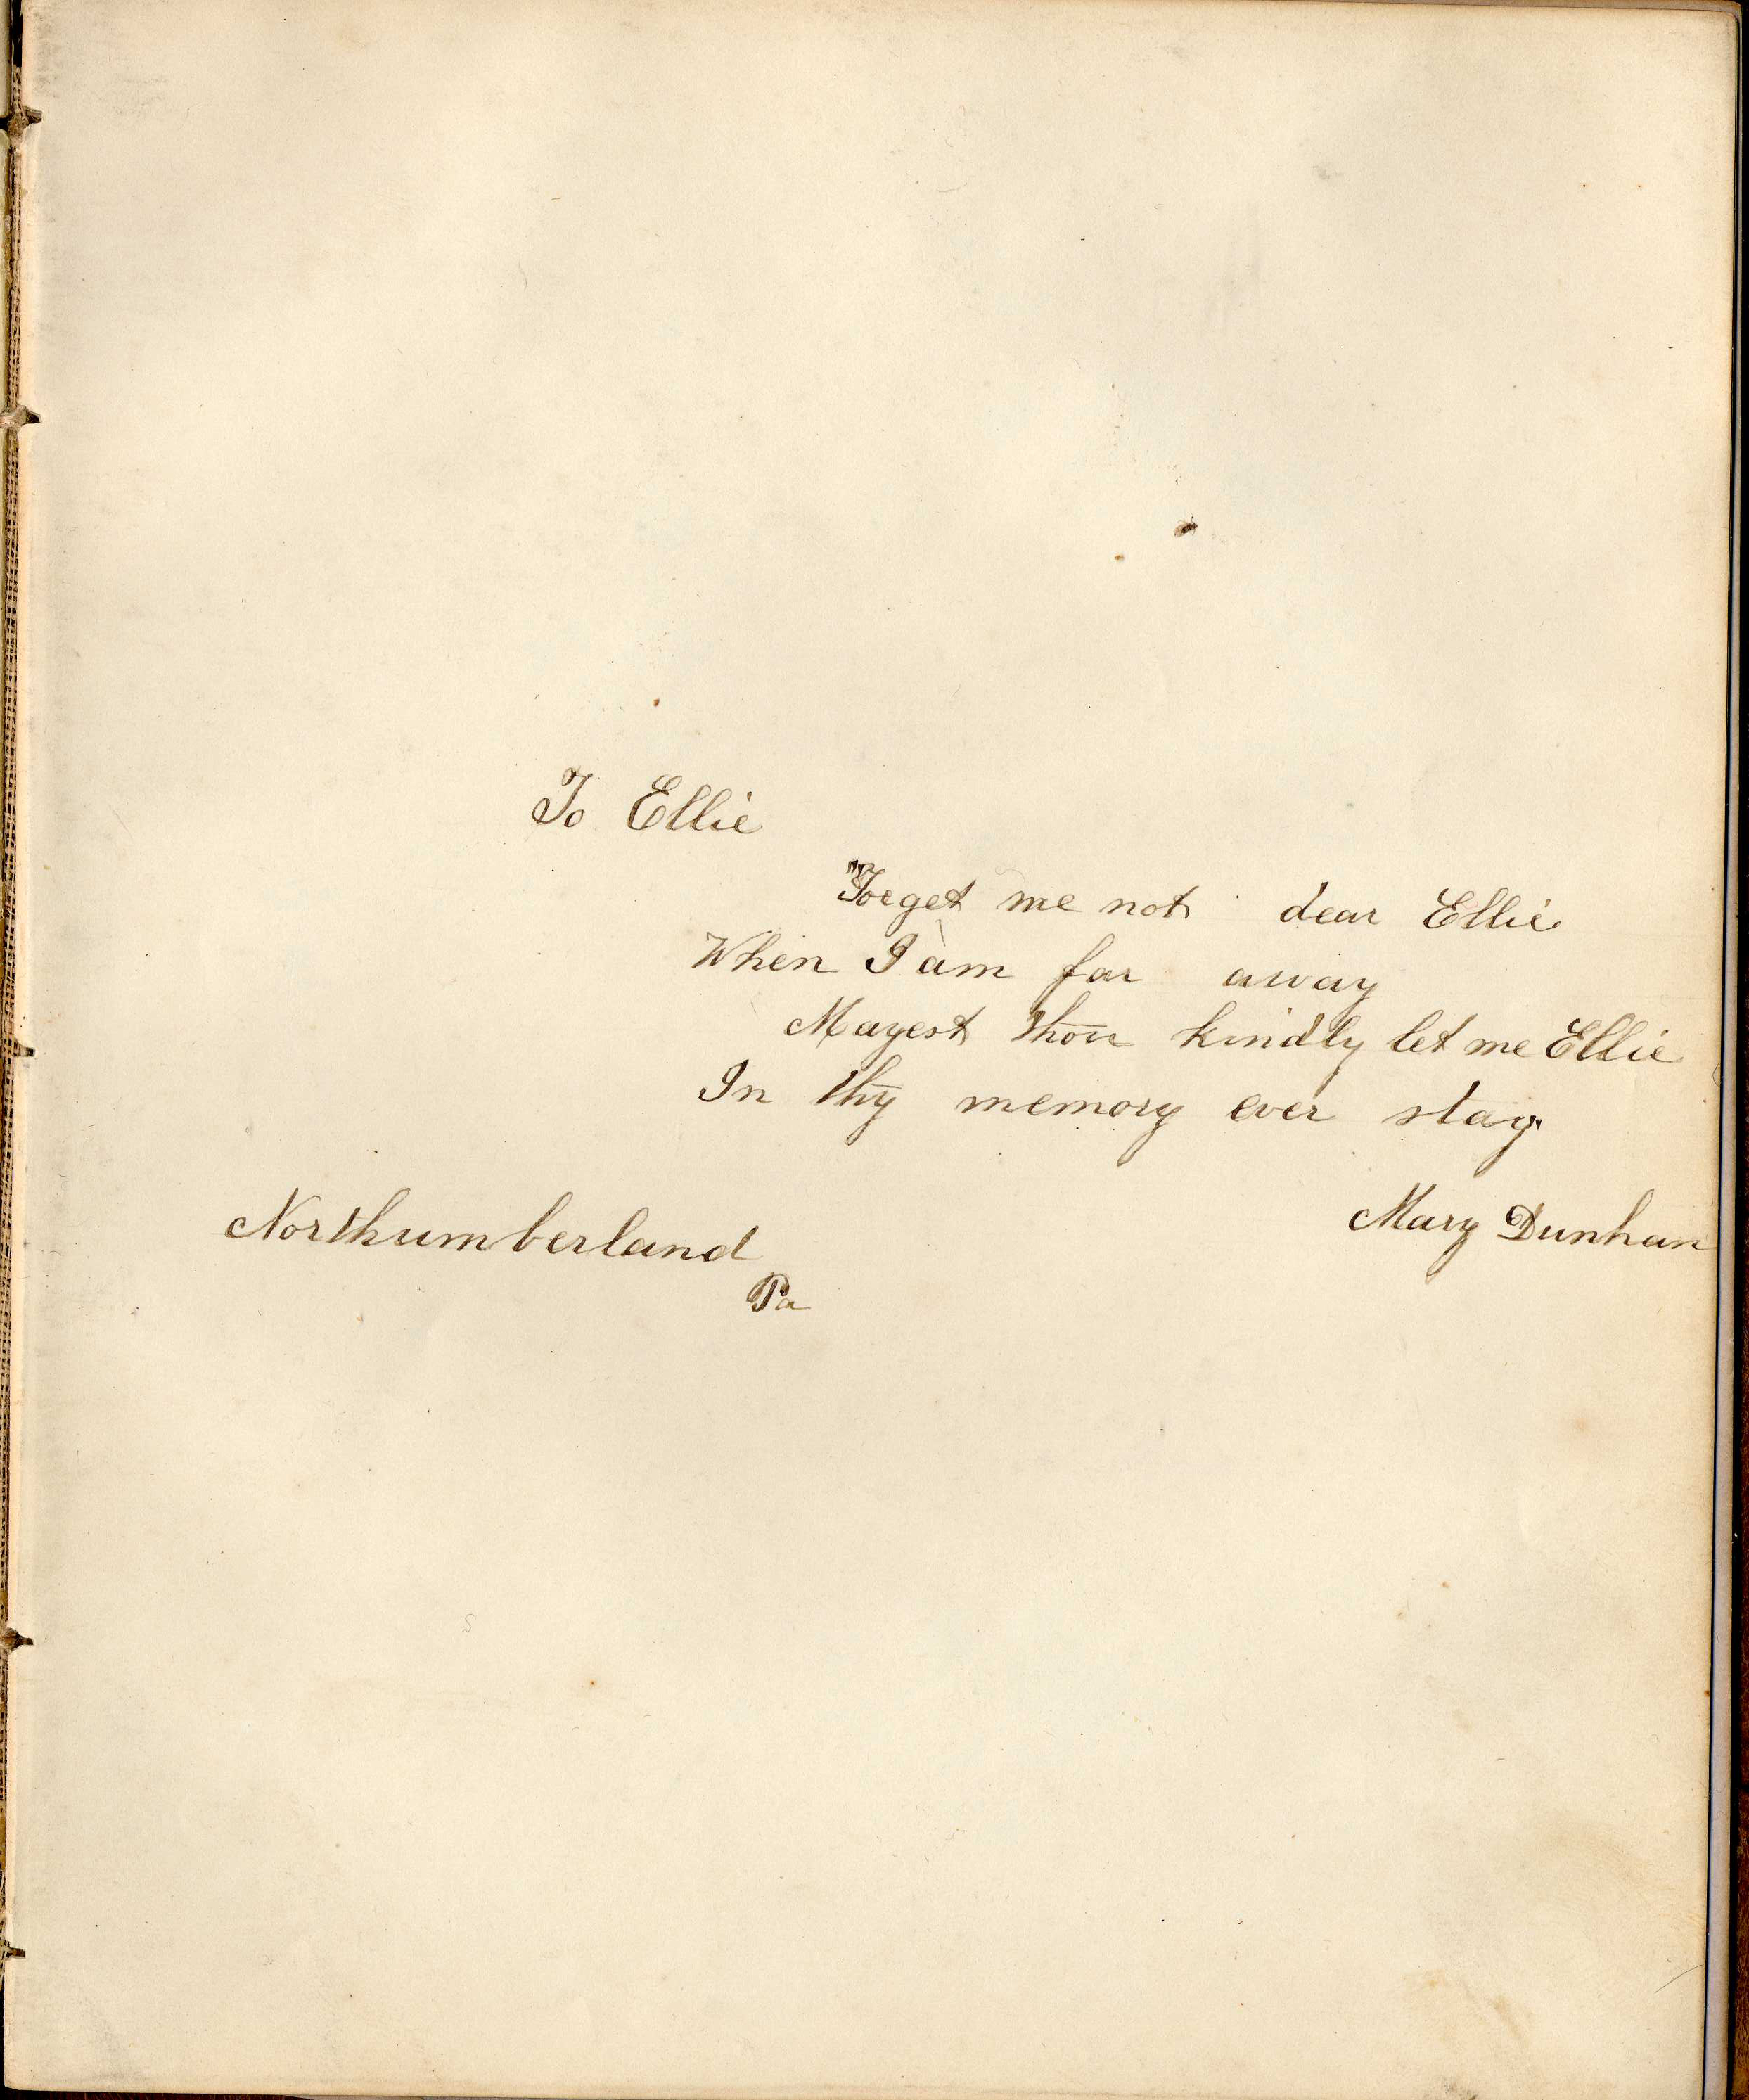 To Ellie
"Forget me not dear Ellie
When I am far away
Mayest thou kindly let me Ellie
In thy memory ever stay"
Mary Dunham
Northumberland
Pa